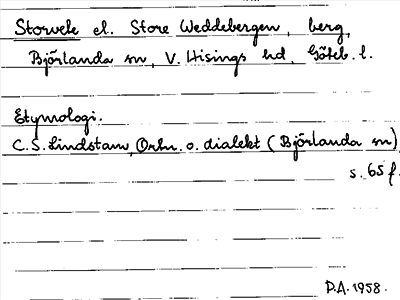 Storvele el. Store Weddebergen, berg,
Björlanda sn, V. Hisings hd, Göteb. l.
Etymologi.
C.S. Lindstam, Ortn. o. dialekt (Björlanda sn)
s. 65 f.
D.A. 1958.